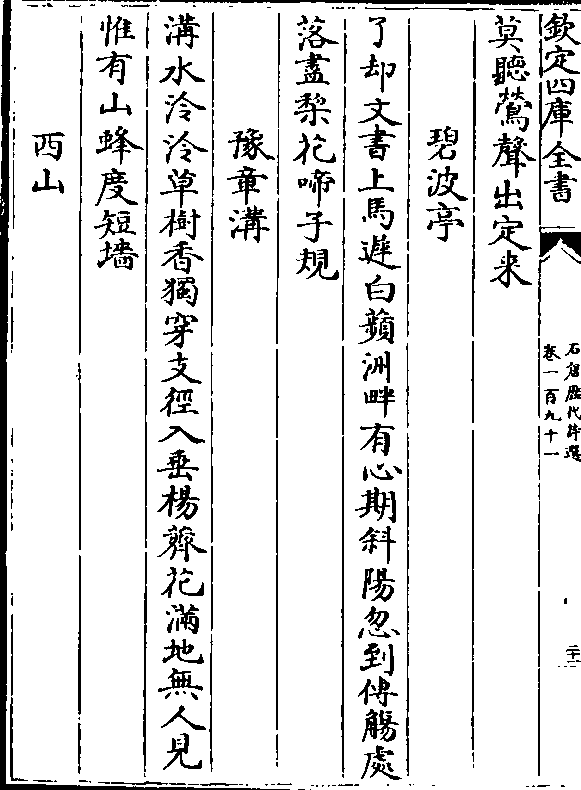 欽定四庫全書
石倉歷代詩選
卷一百九十一
二十二
莫聽鶯聲出定来
碧波亭
了却文書上馬遲白蘋洲畔有心期斜陽忽到傳觴處
落盡梨花啼子規
豫章溝
溝水泠泠草樹香獨穿支徑入垂楊薺花滿地無人見
惟有山蜂度短墻
西山